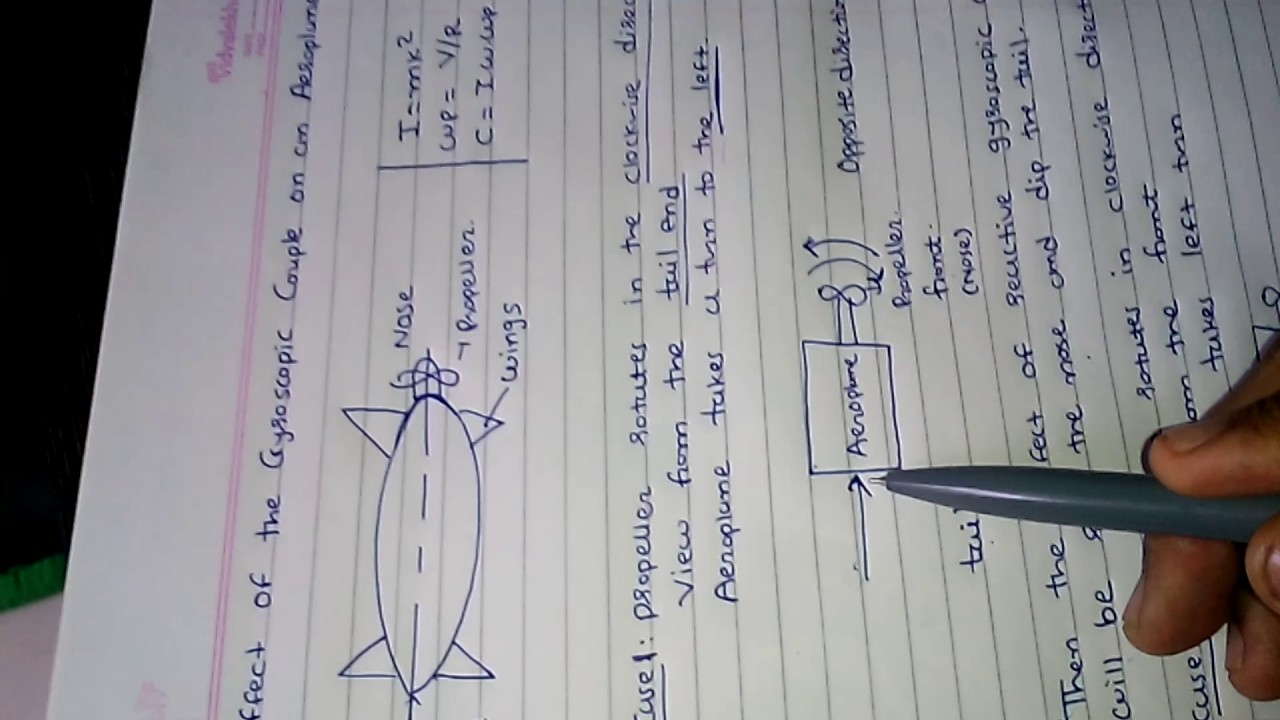 ffect of the Gyroscopic Couple on an Aeroplane
Nose
Propeller.
wings
I = mk²
wp = V/R
C = I w wp
Case 1: propeller rotates in the clockwise direc
View from the tail end
Aeroplane takes a turn to the left
Aeroplane
tail
Propeller
front.
(nose)
Opposite direction
Then the fect of reactive gyroscopic
will be the nose and dip the tail.
Case rotates in clockwise direct
om the front
takes left turn